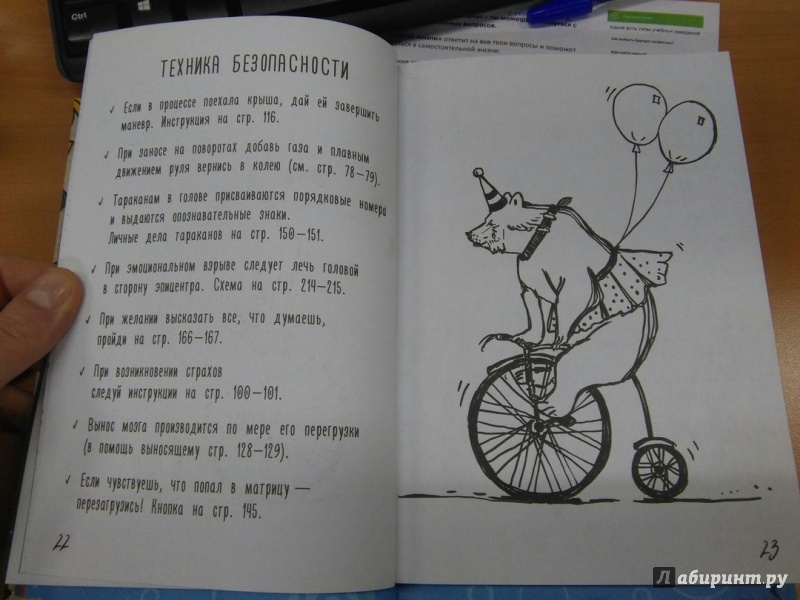 Ctrl
жизни» ответит на все твои вопросы и поможет
в самостоятельной жизни:
ТЕХНИКА БЕЗОПАСНОСТИ
✓ Если в процессе поехала крыша, дай ей завершить
маневр. Инструкция на стр. 116.
✓ При заносе на поворотах добавь газа и плавным
движением руля вернись в колею (см. стр. 78–79).
✓ Тараканам в голове присваиваются порядковые номера
и выдаются опознавательные знаки.
Личные дела тараканов на стр. 150–151.
✓ При эмоциональном взрыве следует лечь головой
в сторону эпицентра. Схема на стр. 214–215.
✓ При желании высказать все, что думаешь,
пройди на стр. 166–167.
✓ При возникновении страхов
следуй инструкции на стр. 100–101.
✓ Вынос мозга производится по мере его перегрузки
(в помощь выносящему стр. 128–129).
✓ Если чувствуешь, что попал в матрицу —
перезагрузись! Кнопка на стр. 145.
22
23
Лабиринт.ру